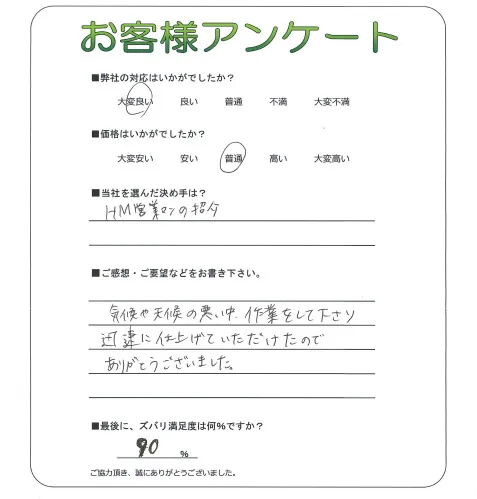 お客様アンケート
■弊社の対応はいかがでしたか？
大変良い 良い 普通 不満 大変不満
■価格はいかがでしたか？
大変安い 安い 普通 高い 大変高い
■当社を選んだ決め手は？
HM営業マンの紹介
■ご感想・ご要望などをお書き下さい。
気候や天候の悪い中、作業をして下さり
迅速に仕上げていただけたので
ありがとうございました。
■最後に、ズバリ満足度は何％ですか？
90 ％
ご協力頂き、誠にありがとうございました。